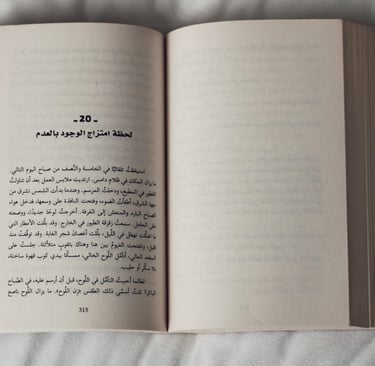 ـ 20 ـ
لحظة امتزاج الوجود بالعدم
استيقظتُ تلقائيًا في الخامسة والنّصف من صباح اليوم التالي.
ما يزال المكان في ظلام دامس. ارتديت ملابس العمل بعد أن تناولتُ
فطوري في المطبخ، ودخلتُ المرسم. وعندما بدأت الشمس تشرق من
جهة الشرق، أطفأتُ الضوء، وفتحت النافذة على وسعها، فدخل هواء
الصباح البارد والمنعش إلى الغرفة. أخرجتُ لوحًا جديدًا، ووضعته
على الحامل. سمعتُ زقزقة الطيور في الخارج. بلّلت الأمطار التي
ما تفكّت تهطل في الليل، بلّلت أغصان شجر الغابة. وقد توقّفت منذ
قليل، وبدأت الغيومُ بين هنا وهناك بثقوب متلألئة. جلستُ على
المقعد العالي، أتأمّل اللّوح الخالي، ممسكًا بيدي كوب قهوة ساخنة،
بلا سكّر أو حليب.
لطالما أحببتُ التأمّل في اللّوح، قبل أن أرسم عليه، في الصّباح
الباكر! كنتُ أسمّي ذلك الطقس «زن اللّوح». ما يزال اللّوح ناصع
315